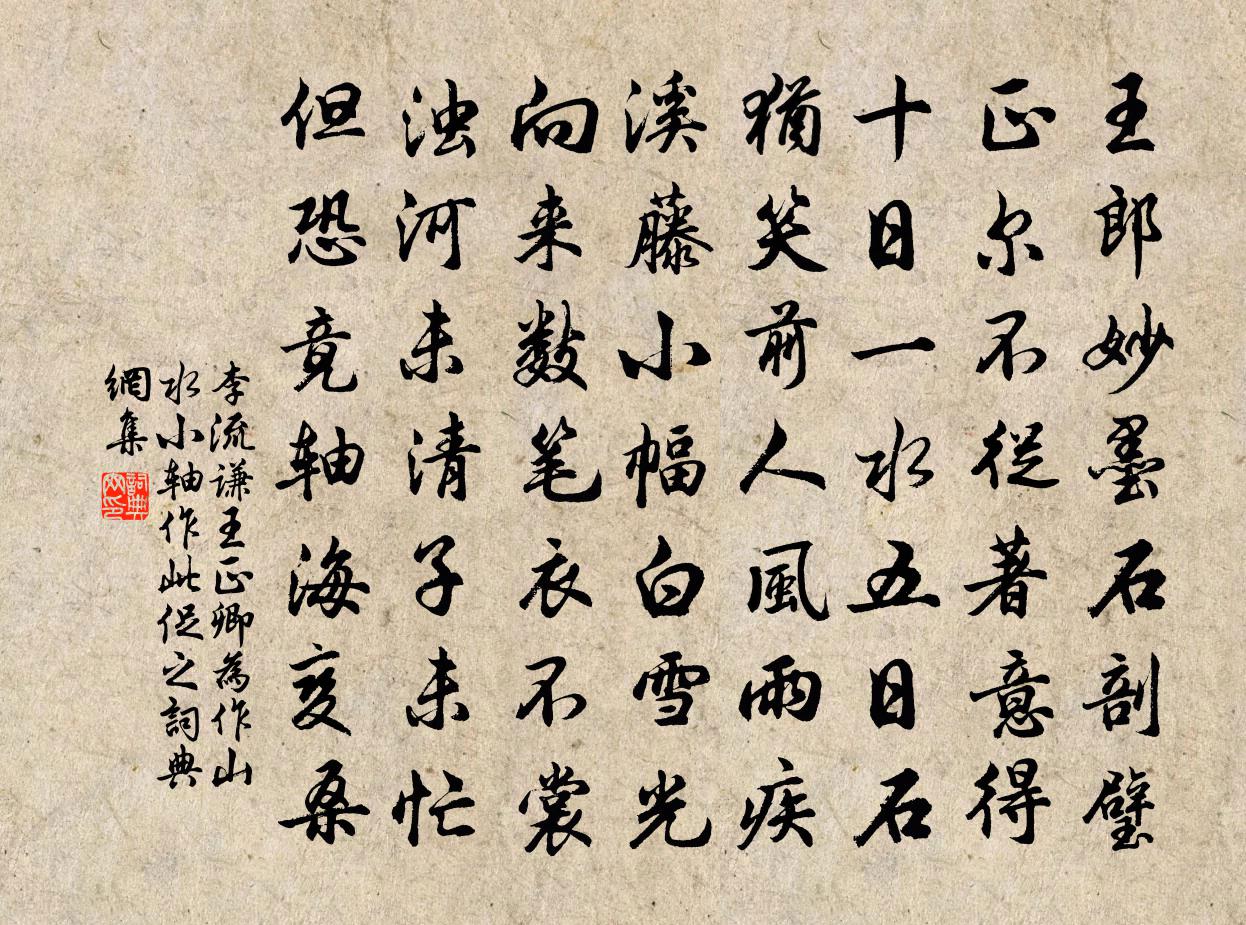 王郎妙墨石剖璧
正尔不從著意得
十日一水五日石
猶笑前人風雨疾
溪藤小幅白雪光
向来數笔衣不裳
浊河未清子未忙
但恐竟轴海变桑
李流谦王正卿為作山
水小轴作此促之詞典
網集
詞典網印